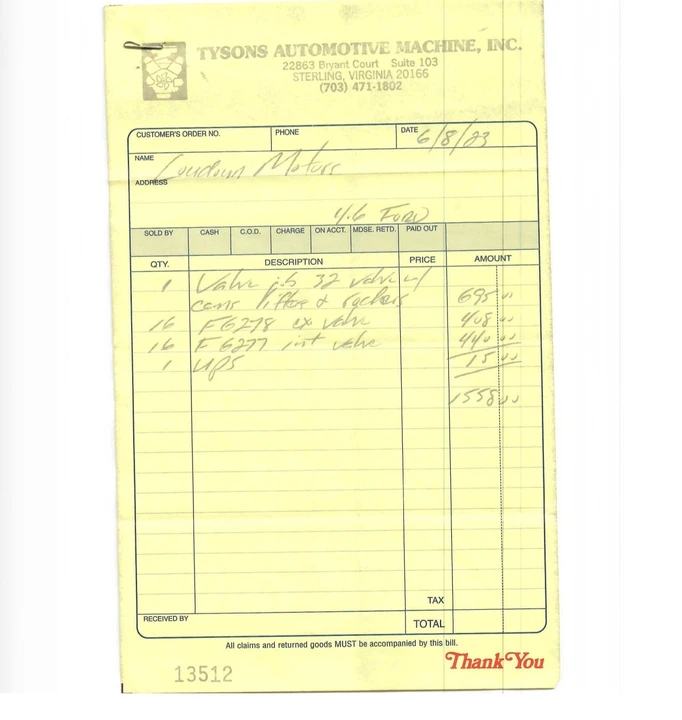 TYSONS AUTOMOTIVE MACHINE, INC.
22863 Bryant Court Suite 103
STERLING, VIRGINIA 20166
(703) 471-1802
CUSTOMER'S ORDER NO. PHONE DATE 6/8/23
NAME Loudoun Motors
ADDRESS
4.6 FORD
SOLD BY CASH C.O.D. CHARGE ON ACCT. MDSE. RETD. PAID OUT
QTY. DESCRIPTION PRICE AMOUNT
1 Valve job 32 valve w/
cams lifters & rockers 695 00
16 F6278 ex valve 408 00
16 F6277 int valve 440 00
1 UPS 15 00
1558 00
TAX
RECEIVED BY TOTAL
All claims and returned goods MUST be accompanied by this bill.
13512 Thank You